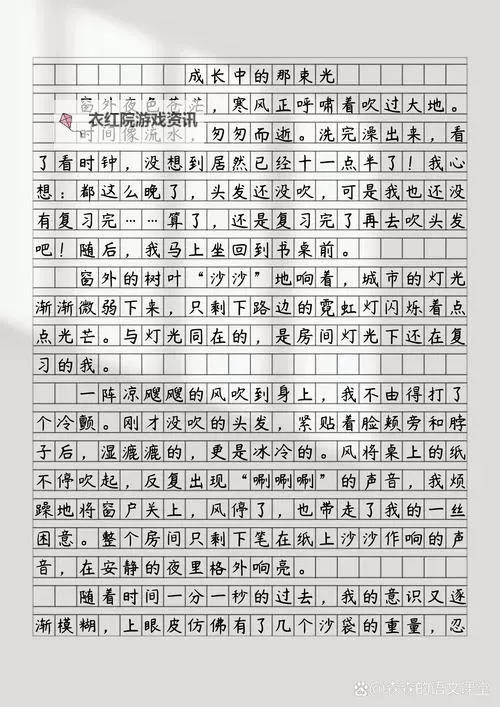 成长中的那束光
窗外夜色苍茫，寒风正呼啸着吹过大地。
衣红院游戏资讯
时间像流水，匆匆而逝。洗完澡出来，看
了看时钟，没想到居然已经十一点半了！我心
想：都这么晚了，头发还没吹，可是我也还没
有复习完……算了，还是复习完了再去吹头发
吧！随后，我马上坐回到书桌前。
窗外的树叶“沙沙”地响着，城市的灯光
渐渐微弱下来，只剩下路边的霓虹灯闪烁着点
点光芒。与灯光同在的，是房间灯光下还在复
习的我。
一阵凉飕飕的风吹到身上，我不由得打了
个冷颤。刚才没吹的头发，紧贴着脸颊旁和脖
子后，湿漉漉的，更是冰冷的。风将桌上的纸
不停吹起，反复出现“唰唰唰”的声音，我烦
躁地将窗户关上，风停了，也带走了我的一丝
困意。整个房间只剩下笔在纸上沙沙作响的声
音，在安静的夜里格外响亮。
随着时间一分一秒的过去，我的意识又逐
渐模糊，上眼皮仿佛有了几个沙袋的重量，忍
森森的语文课堂